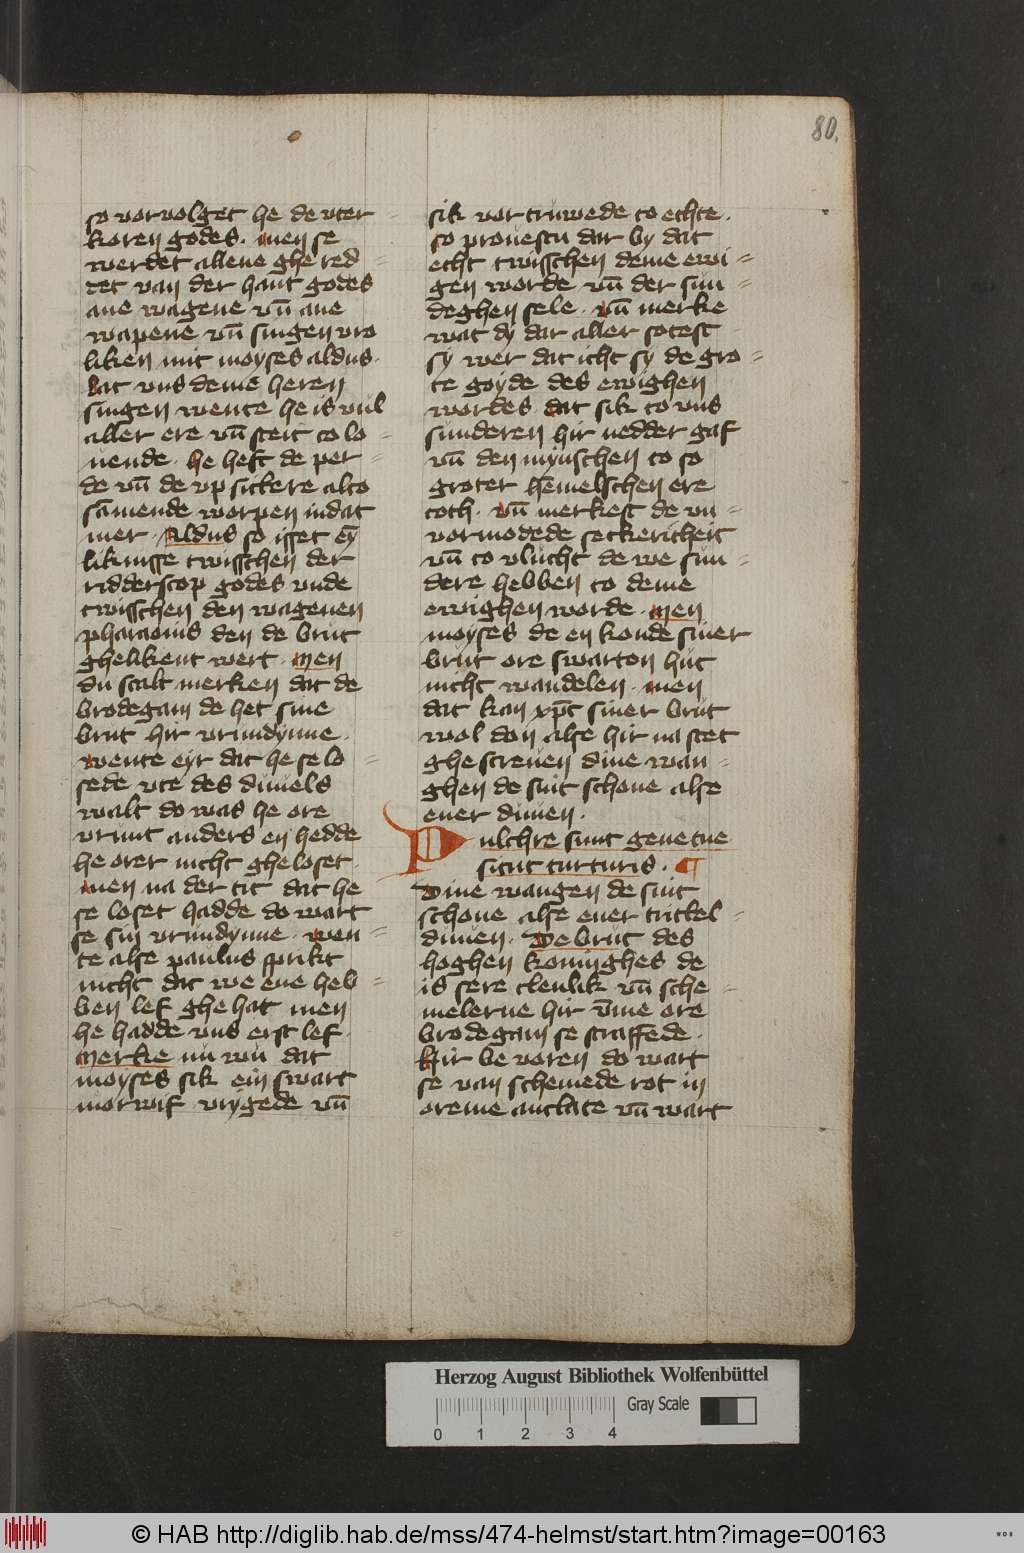 80.
so vorvolget he de vter
koren godes. men se
werdet allene ghe red
det van der hant godes
ane wagene vn̄ ane
wapene vn̄ singen vro
liken mit moyses aldus.
Lat vns deme heren
singen wente he is vul
aller ere vn̄ steit to lo-
uende. he heft de per-
de vn̄ de vp sittere alto
samende worpen in dat
mer. Aldus so isset eȳ
liknisse twisschen der
ridderscop godes vnde
twisschen den wagenen
pharaonis den de brut
ghelikent wert. Men
du scalt merken dat de
brodegam de het sine
brut hir vrundynne.
wente eyr dat he se lo-
sede vte des duuels
walt do was he ore
vrunt anders en hedde
he orer nicht gheloset.
Men na der tit dat he
se loset hadde do wart
se sin vrundynne. wen-
te alse paulus sprikt
nicht dat we ene heb-
ben lef ghe hat men
he hadde vns erst lef.
Merke nu wu dat
moyses sik ein swart
morwif vrygede vn̄
sik vor truwede to echte.
so prouestu dar by dat
echt twisschen deme ewi-
gen worde vn̄ der sun-
deghen sele. vn̄ merke
wat dy dar aller sotest
sy wer dat icht sy de gro-
te goyde des ewighen
wordes dat sik to vns
sunderen hir nedder gaf
vn̄ den mynschen to so
groter hemelschen ere
toth. vn̄ merkest de vn-
vormodede seckericheit
vn̄ to vlucht de we sun-
dere hebben to deme
ewighen worde. Men
moyses de en konde siner
brut ore swarten hut
nicht wandelen. men
dat kan xp̄c siner brut
wol don alse hir na stet
ghe screuen dine wan-
ghen de sint schone alse
ener duuen.
Pulchre sunt gene tue
sicut turturis. ¶
Dine wangen de sint
schone alse ener turtel-
duuen. De brut des
hoghen koninghes de
is sere clenlik vn̄ sche-
melerne hir v̄me ore
brodegam se straffede.
Hir be voren do wart
se van schemede rot in
oreme antlate vn̄ wart
Herzog August Bibliothek Wolfenbüttel
Gray Scale
0 1 2 3 4
© HAB http://diglib.hab.de/mss/474-helmst/start.htm?image=00163